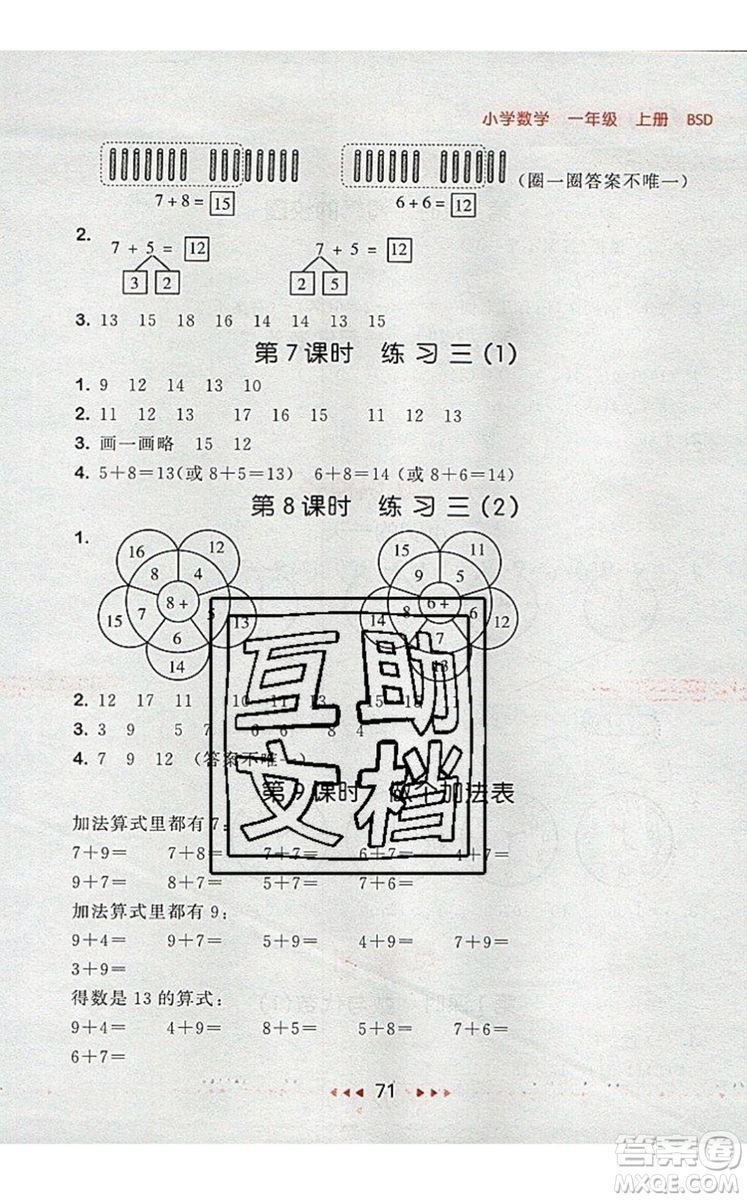 小学数学 一年级 上册 BSD
7+8=15 6+6=12 (圈一圈答案不唯一)
2. 7+5=12 7+5=12
3 2 2 5
3. 13 15 18 16 14 14 13 15
第7课时 练习三(1)
1. 9 12 14 13 10
2. 11 12 13 17 16 15 11 12 13
3. 画一画略 15 12
4. 5+8=13(或8+5=13) 6+8=14(或8+6=14)
第8课时 练习三(2)
1.
16 12 15 11
8 4 9 5
15 7 8+ 5 13 14 8 6+ 6 12
6 7
14 13
2. 12 17 11 10 13 15 18 11
3. 3 9 5 7 6 8 4
4. 7 9 12 (答案不唯一)
第9课时 做个加法表
加法算式里都有7:
7+9= 7+8= 7+7= 6+7= 4+7=
9+7= 8+7= 5+7= 7+6=
加法算式里都有9:
9+4= 9+7= 5+9= 9+6= 7+9=
3+9=
得数是13的算式:
9+4= 4+9= 8+5= 5+8= 7+6=
6+7=
71
互助
文档
答案圈